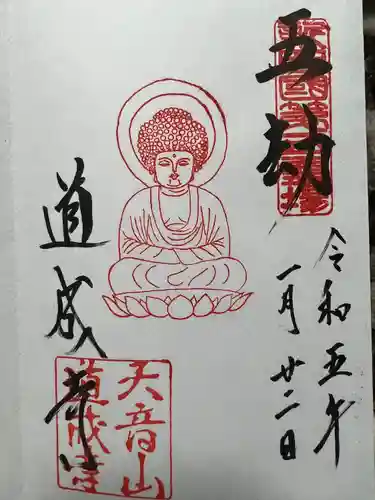 五劫
令和五年
一月廿二日
道成寺
天音山
道成寺